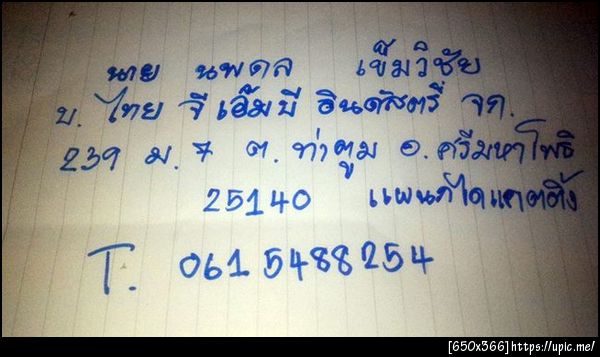 นาย นพดล เข็มวิชัย
บ. ไทย จีเอ็มบี อินดัสตรี่ จก.
239 ม. 7 ต. ท่าตูม อ. ศรีมหาโพธิ
25140 แผนกไดแคตติ้ง
T. 061 5488254
[650x366]https://upic.me/